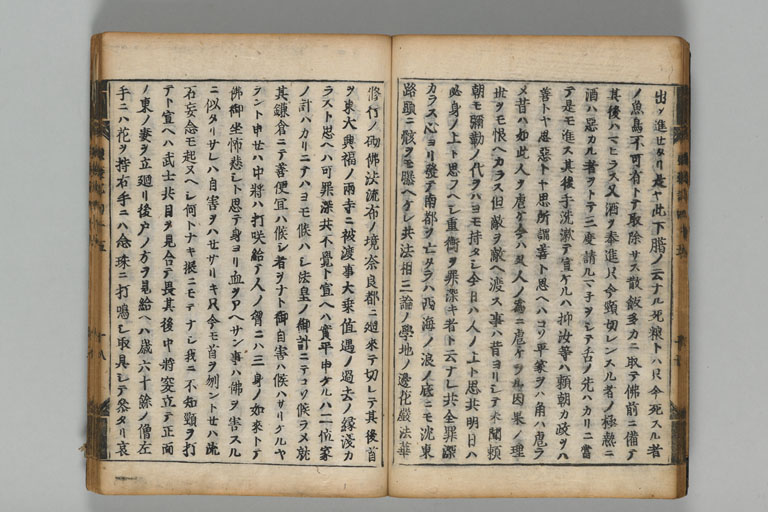 出タ進セタリ是ヤ此下臈ノ云ナル死粮トハ只今死スル者
ノ魚鳥不可有トテ取除サス散飯多カニ取テ佛前ニ備テ
其後ハマヒラス又酒ヲ奉進只今頸切レンスル者ノ極熱ニ
酒ハ惡カル者ヲトテ三度請ルマ子ヲシテ舌ノ先ハカリニ當
テ是モ進ス其後手洗漱テ宣ケルハ抑汝等ハ頼朝カ政ヲハ
善トヤ思惡トヤ思所謂善ト思ヘハコソ平家ヲハ角ハ虐ラ
メ昔ハ如此人ヲ虐ケ今ハ又人ノ為ニ虐ケラル因果ノ理
世ヲモ恨ヘカラス但敵ヲ敵ヘ渡ス事ハ昔ヨリシテ未聞頼
朝モ彌勒ノ代ヲハヨモ持タシ今日ハ人ノ上ト思共明日ハ
必身ノ上ト思フヘシ重衡ヲ罪深キ者ト云ナレ共全罪深
カラス心ヨリ發テ南都ヲ亡タラハ西海ノ浪ノ底ニモ沈東
路頭ニ骸ヲモ曝ヘケレ共法相三論ノ學地ノ邊化嚴法華
修行ノ砌佛法流布ノ境奈良都ニ廻來テ切レテ其後首
ヲ東大興福ノ兩寺ニ被渡事大乗値遇ノ過去ノ縁淺カ
ラスト思ヘハ可罪深共不覺ト宣ヘハ實平申ケルハ二位家
ノ計ハカリニテハヨモ候ハシ法皇ノ御計ニテコソ候ラメ就
其鎌倉ニテ善便宜ハ候シ者ヲナト御自害ハ候ハサリケルヤ
ラント申セハ中將ハ打咲給テ人ノ胸ニハ三身ノ如來トテ
佛御坐怖悲シト思テ身ヨリ血ヲアヘサン事ハ佛ヲ害スル
ニ似タリサレハ自害ヲハセサリキ只今モ首ヲ刎ントセハ流
石妄念モ起ヌヘシ何トナキ振ニモテナシ我ニ不知頸ヲ打
テト宣ヘハ武士共目ヲ見合テ畏其後中將突立テ正面
ノ東ノ妻ヲ立廻リ後戸ノ方ヲ見給ヘハ歳六十餘ノ僧左
手ニハ花ヲ持右手ニハ念珠ニ打鳴シ取具シテ參タリ哀